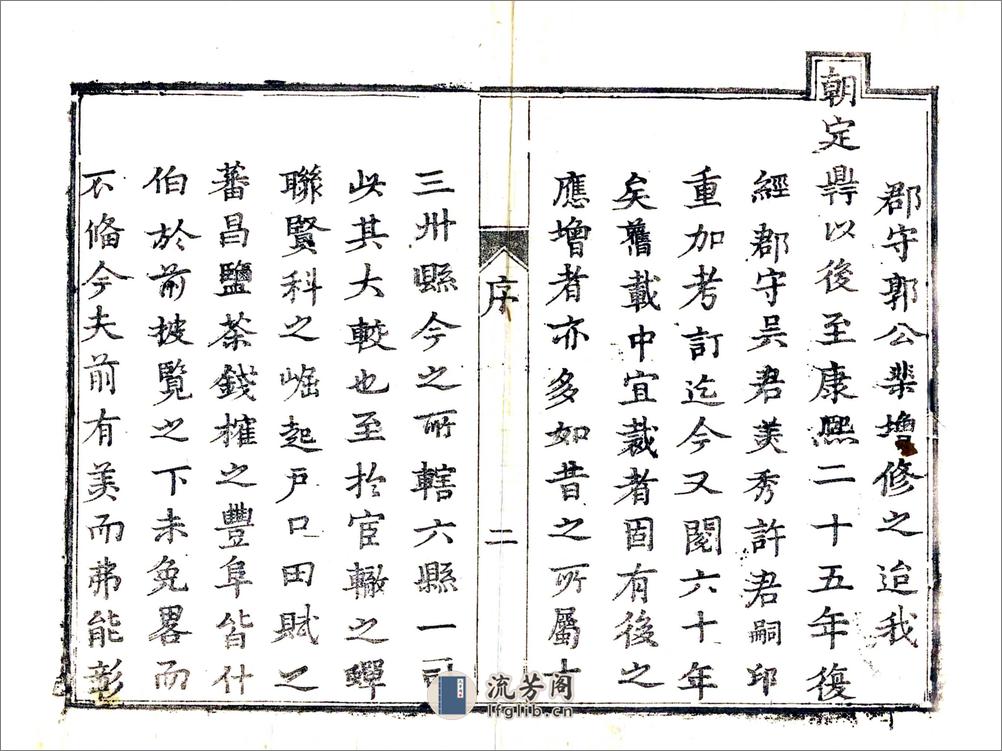 郡守郭公棐增修之迨我
朝定鼎以後至康熙二十五年復
經郡守吳君美秀許君嗣印
重加考訂迄今又閱六十年
矣舊載中宜裁者固有後之
應增者亦多如昔之所屬十
序
二
三州縣今之所轄六縣一司
此其大較也至於宦轍之蟬
聯賢科之崛起戶口田賦之
蕃昌鹽茶錢榷之豐阜皆什
伯於前披覽之下未免畧而
不偹今夫前有美而弗能彰
流芳阁
lfglib.cn